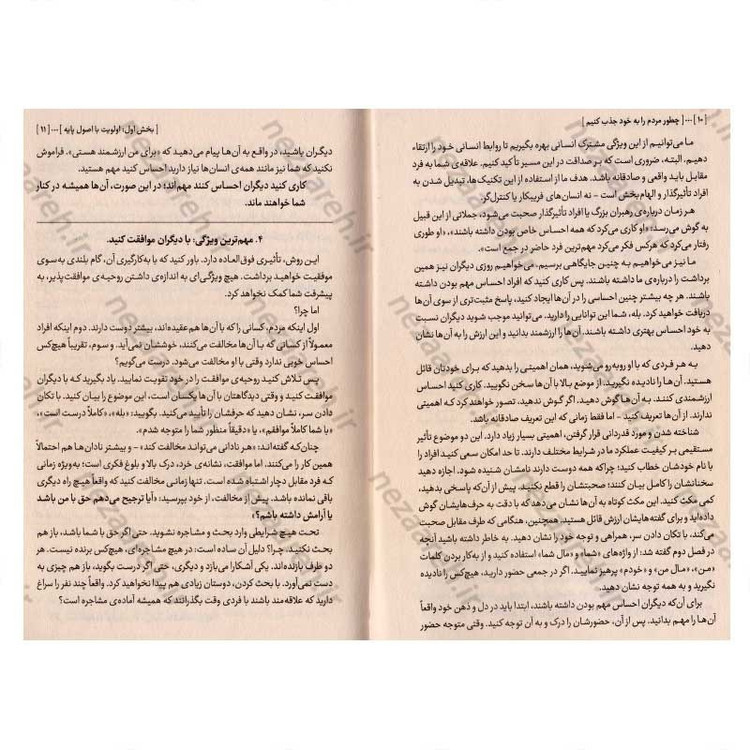 [ ۱۰ ] ... [ چطور مردم را به خود جذب کنیم ]
ما می‌توانیم از این ویژگی مشترک انسانی بهره بگیریم تا روابط انسانی خود را ارتقاء
دهیم، البته، ضروری است که بر صداقت در این مسیر تأکید کنیم. علاقه‌ی شما به فرد
مقابل باید واقعی و صادقانه باشد. هدف ما از استفاده از این تکنیک‌ها، تبدیل شدن به
افراد تأثیرگذار و الهام‌بخش است – نه انسان‌های فریبکار یا کنترل‌گر.
هر زمان درباره‌ی رهبران بزرگ یا افراد تأثیرگذار صحبت می‌شود، جملاتی از این قبیل
به گوش می‌رسد: «او کاری می‌کرد که همه احساس خاص بودن داشته باشند»، «او طوری
رفتار می‌کرد که هرکس فکر می‌کرد مهم‌ترین فرد حاضر در جمع است».
ما نیز می‌خواهیم به چنین جایگاهی برسیم. می‌خواهیم روزی دیگران نیز همین
برداشت را درباره‌ی ما داشته باشند. پس کاری کنید که افراد احساس مهم بودن داشته
باشند. هر چه بیشتر چنین احساسی را در آن‌ها ایجاد کنید، پاسخ مثبت‌تری از سوی آن‌ها
دریافت خواهید کرد. بله، شما این توانایی را دارید، می‌توانید موجب شوید دیگران نسبت
به خود احساس بهتری داشته باشند. آن‌ها را ارزشمند بدانید و این ارزش را به آن‌ها نشان
دهید.
به هر فردی که با او روبه‌رو می‌شوید، همان اهمیتی را بدهید که برای خودتان قائل
هستید. آن‌ها را نادیده نگیرید. از موضع بالا با آن‌ها سخن نگویید. کاری کنید احساس
ارزشمندی کنند. به آن‌ها گوش دهید. اگر گوش ندهید، تصور خواهند کرد که اهمیتی
ندارند. از آن‌ها تعریف کنید – اما فقط زمانی که این تعریف صادقانه باشد.
شناخته شدن و مورد قدردانی قرار گرفتن، اهمیتی بسیار زیاد دارد. این دو موضوع تأثیر
مستقیمی بر کیفیت عملکرد ما در شرایط مختلف دارند. تا حد امکان سعی کنید افراد را
با نام خودشان خطاب کنید؛ چراکه همه دوست دارند نامشان شنیده شود. اجازه دهید
سخنانشان را کامل بیان کنند؛ صحبتشان را قطع نکنید. پیش از آن‌که پاسخی بدهید،
کمی مکث کنید. این مکث کوتاه به آن‌ها نشان می‌دهد که با دقت به حرف‌هایشان گوش
داده‌اید و برای گفته‌هایشان ارزش قائل هستید. همچنین، هنگامی که طرف مقابل صحبت
می‌کند، با تکان دادن سر، همراهی و توجه خود را نشان دهید. به خاطر داشته باشید آنچه
در فصل دوم گفته شد: از واژه‌های «شما» و «مال شما» استفاده کنید و از به‌کار بردن کلمات
«من»، «مال من» و «خودم» پرهیز نمایید. اگر در جمعی حضور دارید، هیچ‌کس را نادیده
نگیرید و به همه توجه نشان دهید.
برای آن‌که دیگران احساس مهم بودن داشته باشند، ابتدا باید در دل و ذهن خود واقعاً
آن‌ها را مهم بدانید. پس از آن، حضورشان را درک و به آن توجه کنید. وقتی متوجه حضور
[ بخش اول: اولویت با اصول پایه ] ... [ ۱۱ ]
دیگران باشید، در واقع به آن‌ها پیام می‌دهید که «برای من ارزشمند هستی». فراموش
نکنید که شما نیز مانند همه‌ی انسان‌ها نیاز دارید احساس کنید مهم هستید.
کاری کنید دیگران احساس کنند مهم‌اند؛ در این صورت، آن‌ها همیشه در کنار
شما خواهند ماند.
۴. مهم‌ترین ویژگی: با دیگران موافقت کنید.
این روش، تأثیری فوق‌العاده دارد. باور کنید که با به‌کارگیری آن، گام بلندی به سوی
موفقیت خواهید برداشت. هیچ ویژگی‌ای به اندازه‌ی داشتن روحیه‌ی موافقت‌پذیر، به
پیشرفت شما کمک نخواهد کرد.
اما چرا؟
اول اینکه مردم، کسانی را که با آن‌ها هم‌عقیده‌اند، بیشتر دوست دارند. دوم اینکه افراد
معمولاً از کسانی که با آن‌ها مخالفت می‌کنند، خوششان نمی‌آید. و سوم، تقریباً هیچ‌کس
احساس خوبی ندارد وقتی با او مخالفت می‌شود. درست می‌گویم؟
پس تلاش کنید روحیه‌ی موافقت را در خود تقویت نمایید. یاد بگیرید که با دیگران
موافقت کنید و وقتی دیدگاهتان با آن‌ها یکسان است، این موضوع را بیان کنید. با تکان
دادن سر، نشان دهید که حرفشان را تأیید می‌کنید. بگویید: «بله»، «کاملاً درست است»،
«با شما کاملاً موافقم»، یا «دقیقاً منظور شما را متوجه شدم».
چنان‌که گفته‌اند: «هر نادانی می‌تواند مخالفت کند» – و بیشتر نادان‌ها هم احتمالاً
همین کار را می‌کنند. اما موافقت، نشانه‌ی خرد، درک بالا و بلوغ فکری است؛ به‌ویژه زمانی
که فرد مقابل دچار اشتباه شده است. تنها زمانی مخالفت کنید که واقعاً هیچ راه دیگری
باقی نمانده باشد. پیش از مخالفت، از خود بپرسید: «آیا ترجیح می‌دهم حق با من باشد
یا آرامش داشته باشم؟»
تحت هیچ شرایطی وارد بحث و مشاجره نشوید. حتی اگر حق با شما باشد، باز هم
بحث نکنید. چرا؟ دلیل آن ساده است: در هیچ مشاجره‌ای، هیچ‌کس برنده نیست. هر
دو طرف بازنده‌اند. یکی آشکارا می‌بازد و دیگری، حتی اگر درست بگوید، باز هم چیزی به
دست نمی‌آورد. با بحث کردن، دوستان زیادی هم پیدا نخواهید کرد. واقعاً چند نفر را سراغ
دارید که علاقه‌مند باشند با فردی وقت بگذرانند که همیشه آماده‌ی مشاجره است؟
nezaareh.ir